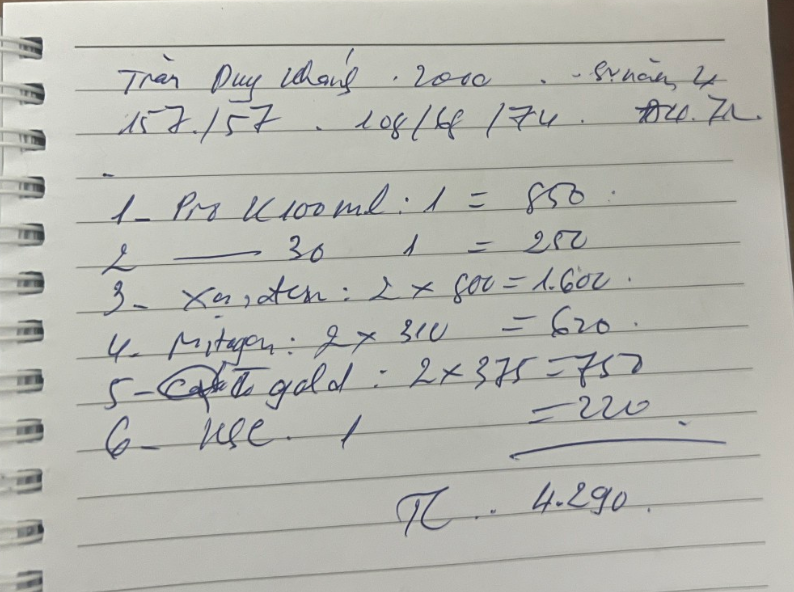 Trần Duy Khánh . 2000 . -
157/57 . 108/68 /74 .
1- Pro K 100ml : 1 = 850
2 — 30 1 = 250
3- : 2 × 800 = 1.600 .
4- Mitagen : 2 × 310 = 620 .
5- gold : 2 × 375 = 750
6- KSC . 1 = 220 .
TC .. 4.290 .